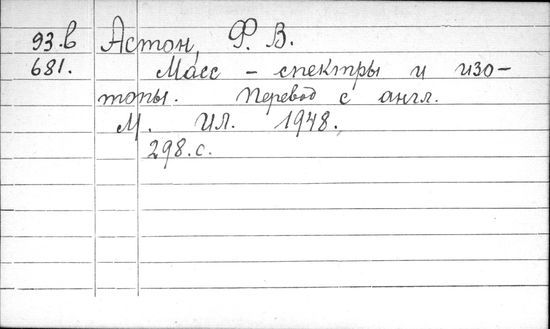 93.в Астон, Ф. В.
681. Масс - спектры и изо-
топы. Перевод с англ.
М. ИЛ. 1948.
298.с.